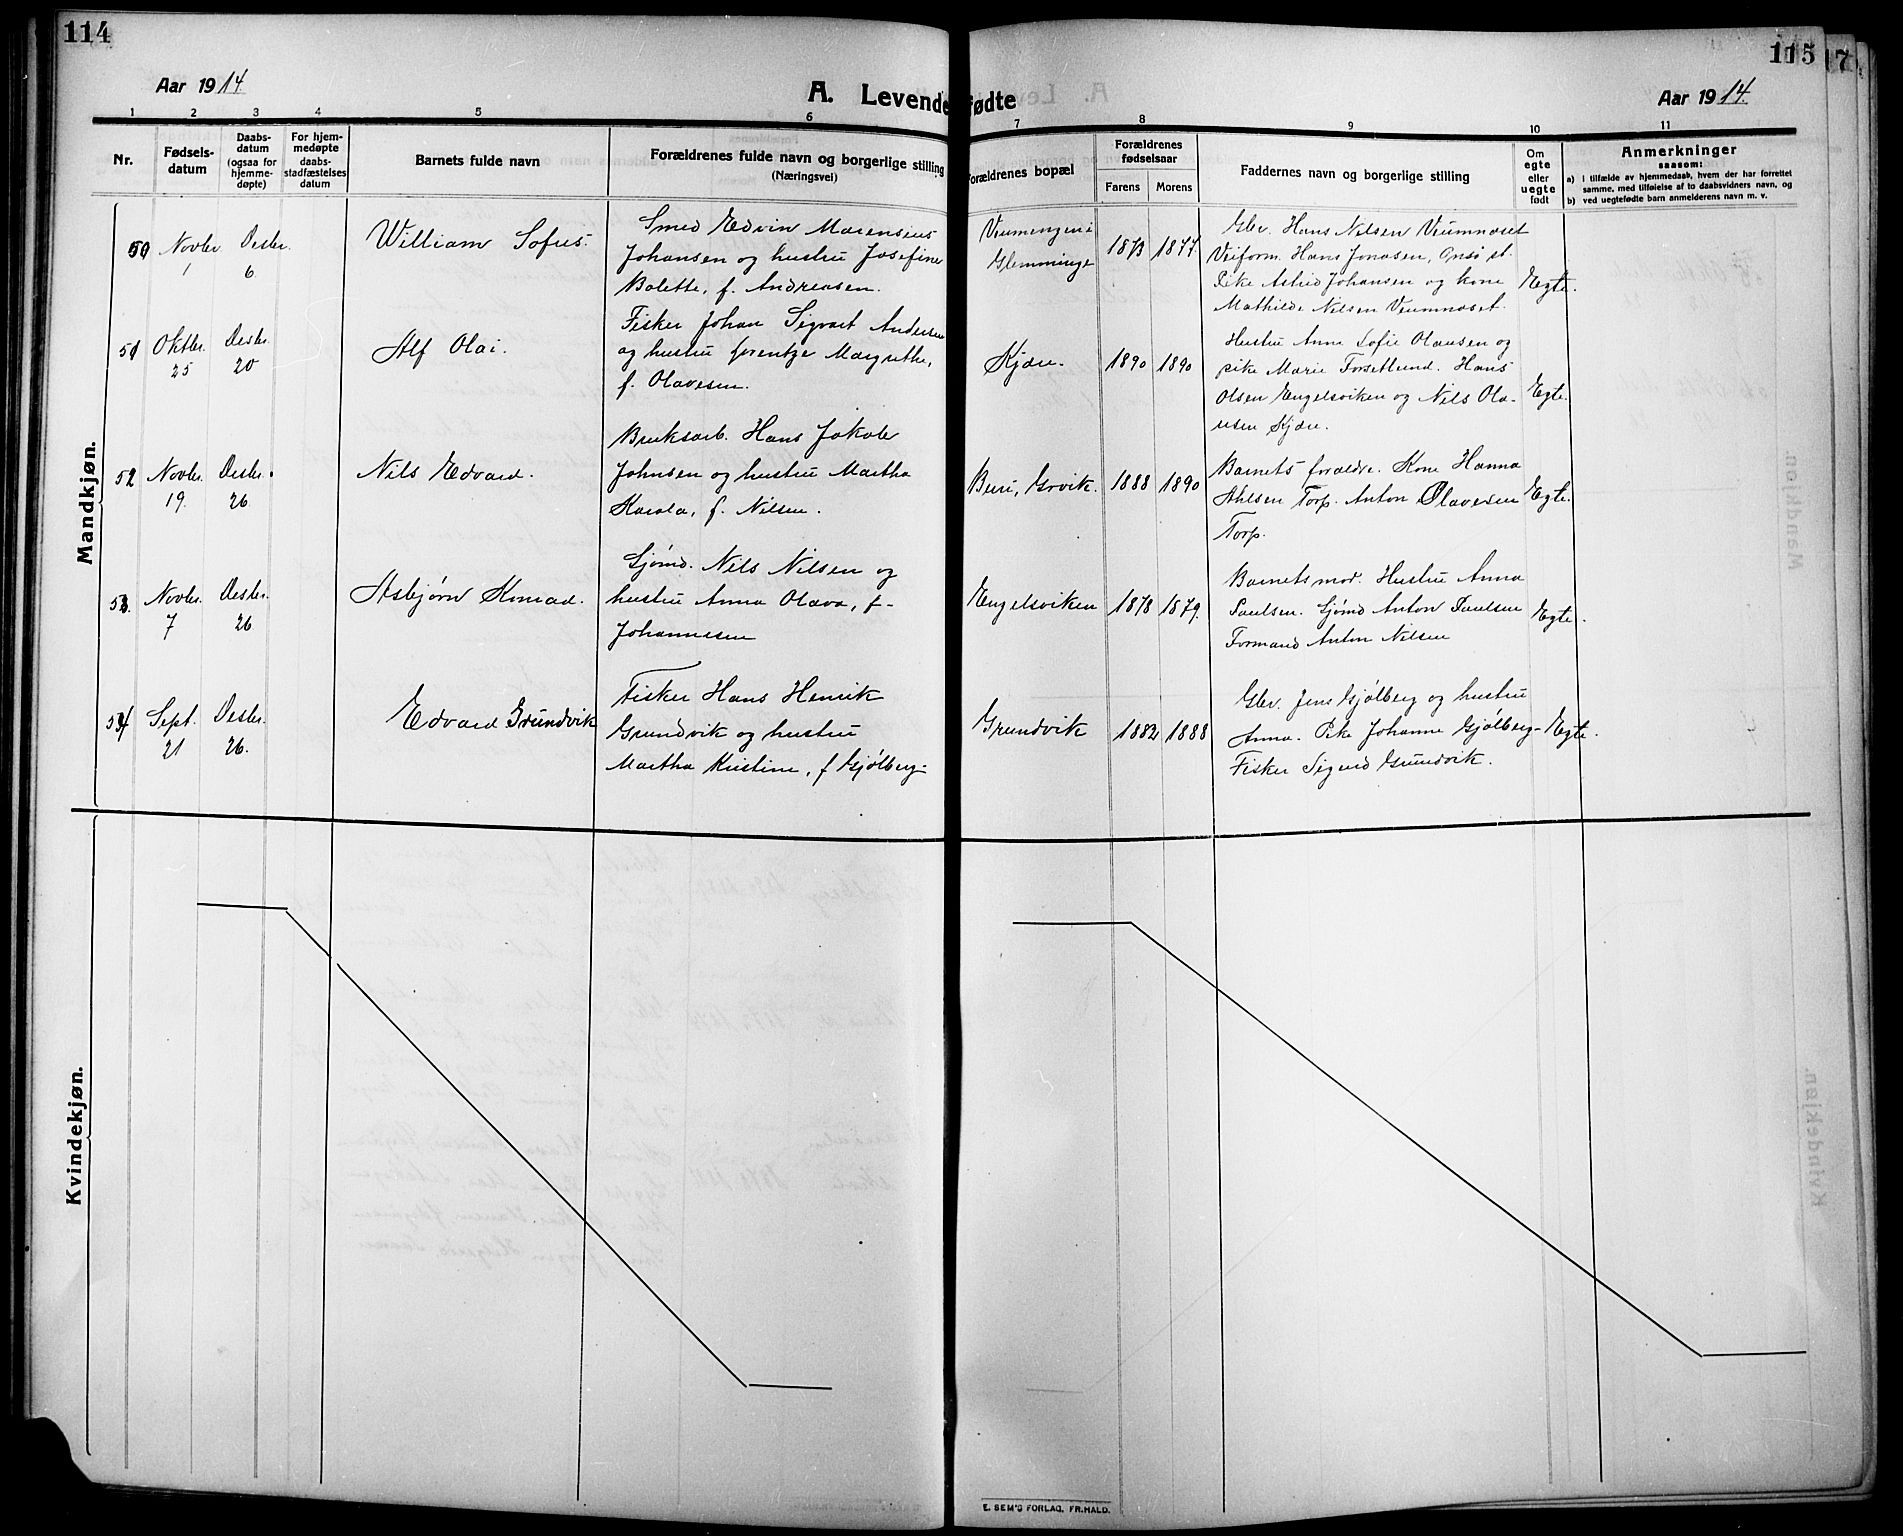 114
Aar 1914.
A. Levende
1 2 3 4 5 6
Nr.
Fødsels-
datum
Daabs-
datum
(ogsaa for
hjemme-
døpte)
For hjem-
medøpte
daabs-
stadfæstelses
datum
Barnets fulde navn
Forældrenes fulde navn og borgerlige stilling
(Næringsvei)
Mandkjøn.
50
Novbr.
1
Desbr.
6
William Sofus.
Smed Edvin Marensius
Johansen og hustru Josefine
Bolette, f. Andreasen.
51
Oktbr.
25
Desbr.
20
Alf Olai.
Fisker Johan Sigvart Andersen
og hustru Margrethe,
f. Olavesen.
52
Novbr.
19.
Desbr.
26
Nils Edvard.
Bruksarb. Hans Jakob
Johnsen og hustru Martha
Karola, f. Nilsen.
53
Novbr.
7
Desbr.
26
Asbjørn Konrad.
Sjømd. Nils Nilsen og
hustru Anna Olava, f-
Johannesen
54
Sept.
21
Desbr.
26.
Edvard Grundvik
Fisker Hans Henrik
Grundvik og hustru
Martha Kristine, f Gjølberg-
Kvindekjøn.
115
17
fødte
Aar 1914.
7 8 9 10 11
Forældrenes bopæl
Forældrenes
fødselsaar
Farens Morens
Faddernes navn og borgerlige stilling
Om
egte
eller
uegte
født
Anmerkninger
saasom:
a) i tilfælde av hjemmedaab, hvem der har forrettet
samme, med tilføielse af to daabsvidners navn, og
b) ved uegtefødte barn anmelderens navn m. v.
Veumengen i
Glemminge
1873 1877.
Gbr. Hans Nilsen Veumnæset
Veiform. Hans Jonasen, Onsø st.
Pike Astrid Johansen og kone
Mathilde Nilsen Veumnæset.
Egte.
Kjære.
1890 1890
Hustru Anne Sofie Olausen og
pike Marie Forsetlund. Hans
Olsen Engelsviken og Nils Ola-
usen Kjære.
Egte.
Buri, Grvik.
1888 1890
Barnets forældre. Kone Hanna
Ahlsen Torp. Anton Olavesen
Torp.
Egte.
Engelsviken
1878 1879.
Barnets mor. Hustru Anna
Paulsen. Sjømd Anton Paulsen
Formand Anton Nilsen
Egte.
Grundvik
1882 1888
Gbr. Jens Gjølberg og hustru
Anna. Pike Johanne Gjølberg-
Fisker Sigurd Grundvik.
Egte.
E. SEM'S FORLAG, FR.HALD.